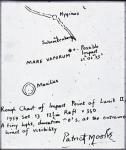 Hyginus
Schneckenberg
MARE VAPORUM
Possible
Impact
Manilius
Rough Chart of Impact Point of Lunik II.
1959 Sept 13 12½in Refl × 350
A tiny light, duration ~ 0.5, at the extreme
limit of visibility
Patrick Moore